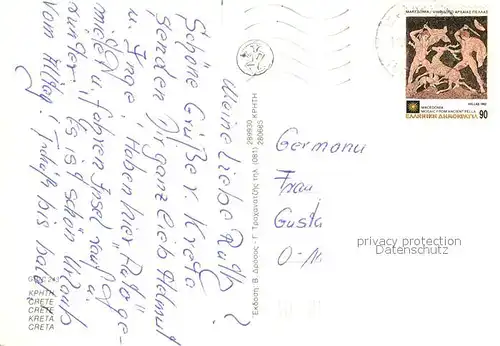 Meine Liebe Ruth!
Schöne Grüße v. Kreta
senden Dir ganz lieb Helmut
u. Inge. Haben hier Auto ge-
mietet u. fahren Insel rauf u.
runter. Es ist schön Urlaub
vom Alltag! Tschüß bis bald
GREC 245
ΚΡΗΤΗ
CRETE
CRETE
KRETA
CRETA
Έκδοση: Β. Δρόσος - Γ. Τραχανατζής τηλ. (081) 289930 280665 ΚΡΗΤΗ
ΜΑΚΕΔΟΝΙΑ / ΨΗΦΙΔΩΤΟ ΑΡΧΑΙΑΣ ΠΕΛΛΑΣ
HELLAS 1992
MACEDONIA
MOSAIC FROM ANCIENT PELLA
ΕΛΛΗΝΙΚΗ ΔΗΜΟΚΡΑΤΙΑ 90
Germany
Frau
Gusti
O-
privacy protection
Datenschutz